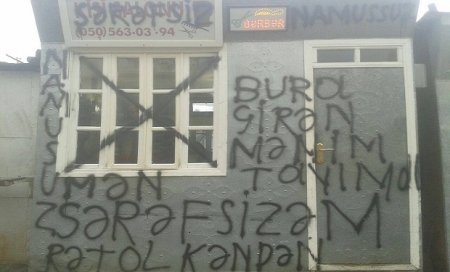 ŞƏRƏFSİZ
(050) 563-03-94
BƏRBƏR
NAMUSSU
NAMUSUZ
BURA
GİRƏN
MƏNİM
TAYIMdI
MƏN
ŞƏRƏFSİZƏM
RƏTOL KƏNDƏN